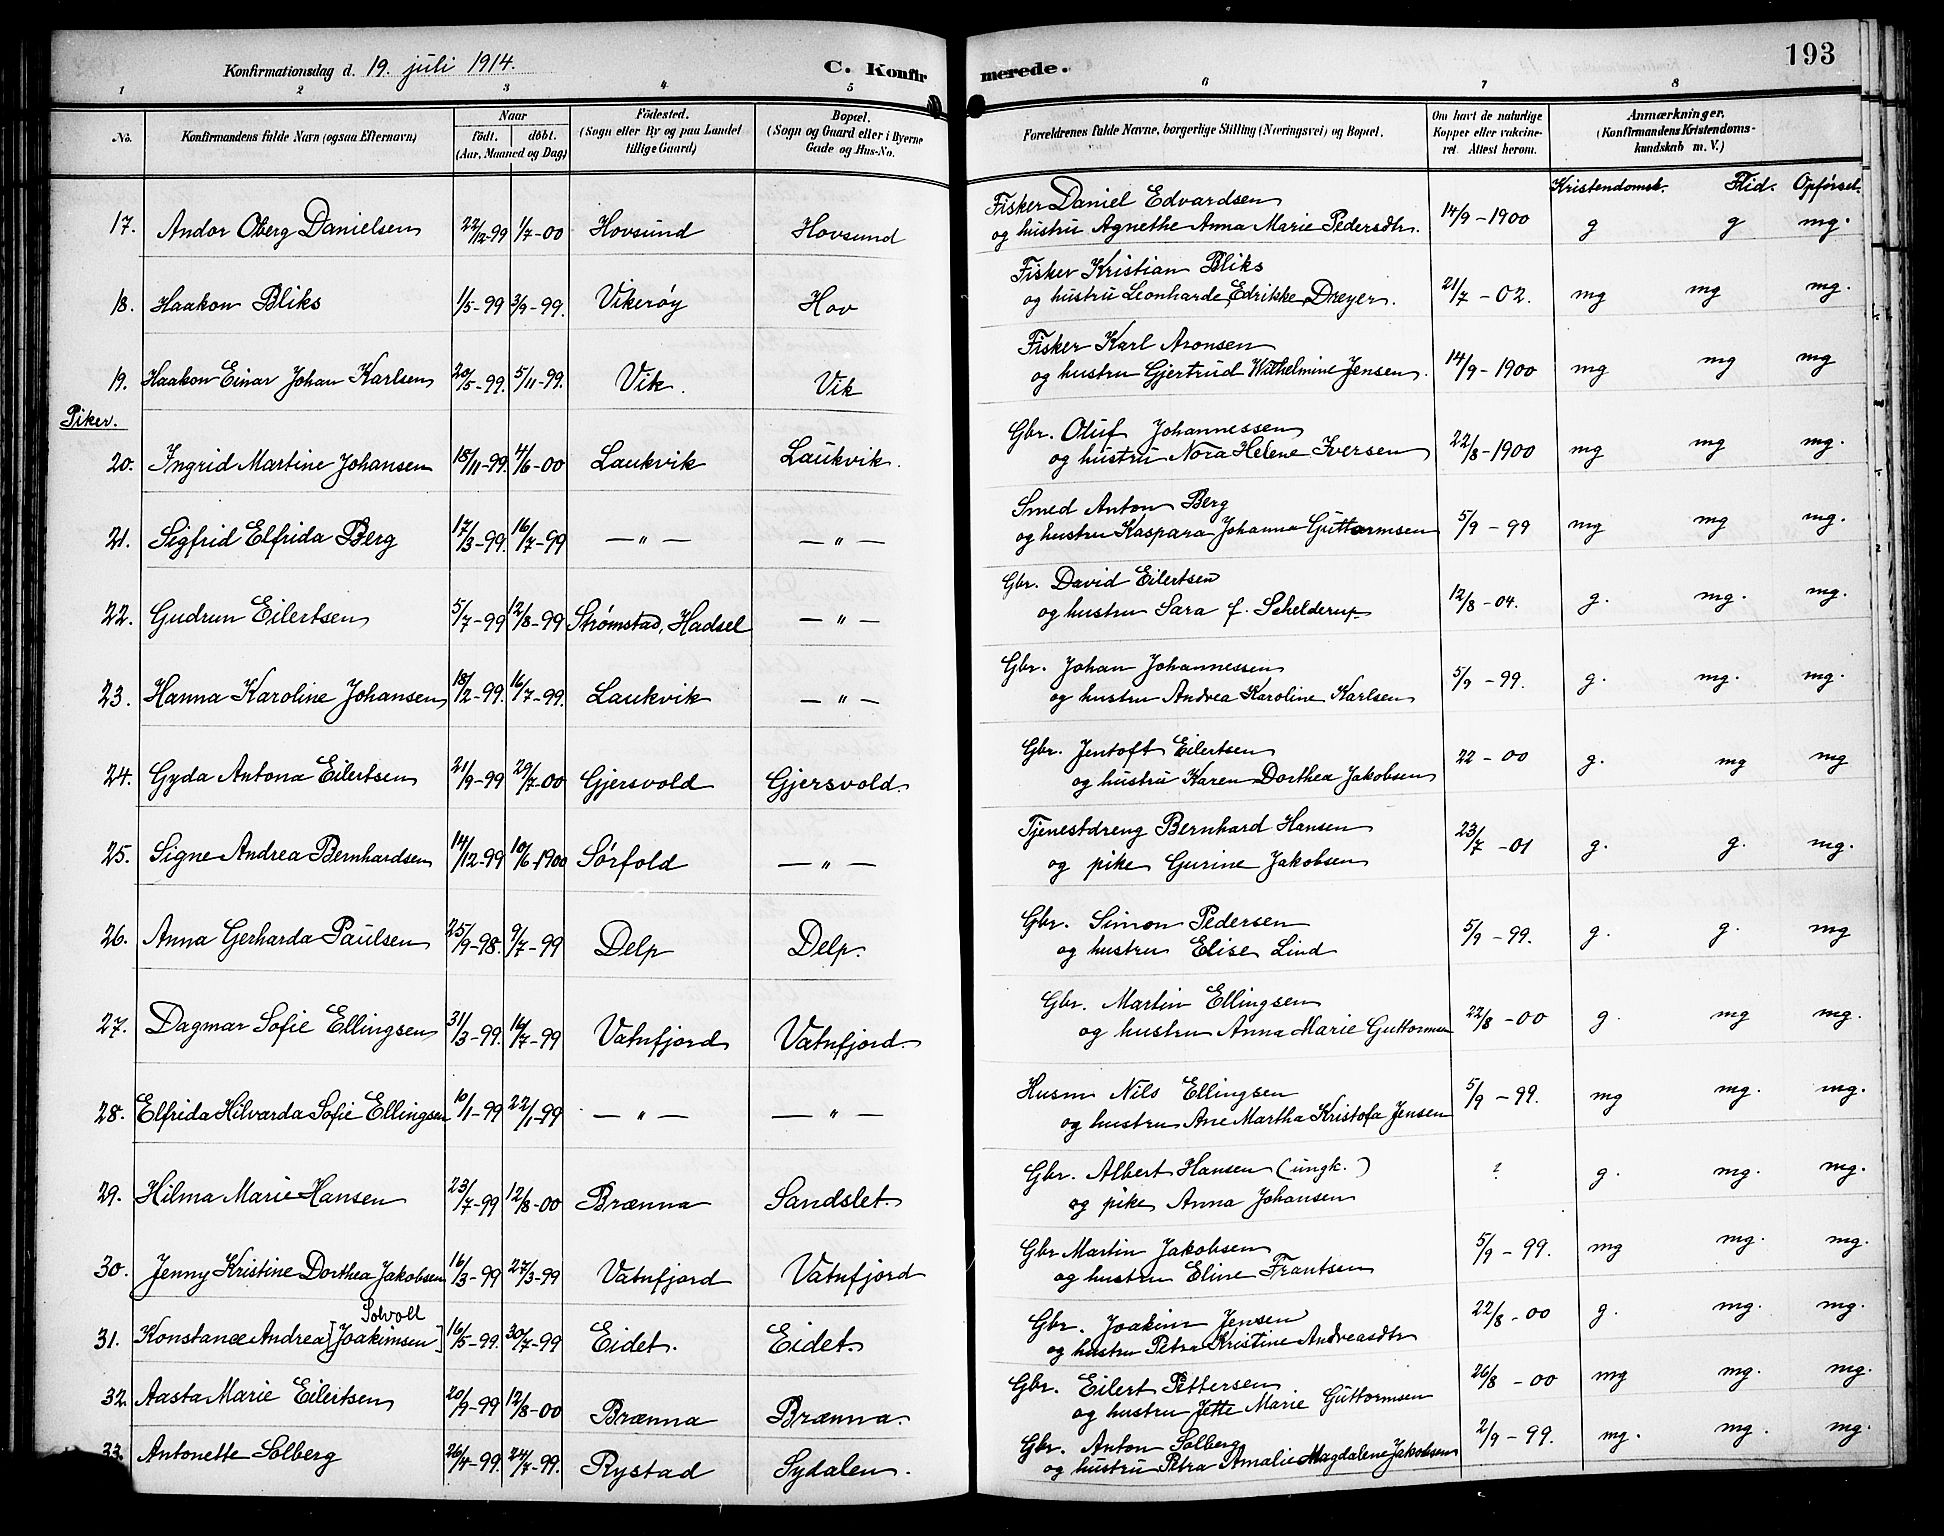 Konfirmationsdag d. 19. juli 1914. C. Konfirmerede. 193
1 2 3 4 5 6 7 8
No. Konfirmandens fulde Navn (ogsaa Efternavn) Naar født. døbt. (Aar, Maaned og Dag) Fødested. (Sogn eller By og paa Landet tillige Gaard) Bopæl. (Sogn og Gaard eller i Byerne Gade og Hus-No. Forældrenes fulde Navne, borgerlige Stilling (Næringsvei) og Bopæl. Om havt de naturlige Kopper eller vakcineret. Attest herom. Anmærkninger. (Konfirmandens Kristendomskundskab m. V.)
Kristendomsk. Flid. Opførsel.
17. Andor Oberg Danielsen 22/12-99 1/7-00 Hovsund Hovsund Fisker Daniel Edvardsen 14/9-1900 g g mg.
og hustru Agnethe Anna Marie Pedersdtr.
18. Haakon Bliks 1/5-99 3/9-99. Vikerøy Hov Fisker Kristian Bliks 21/7-02. mg mg mg.
og hustru Leonharde Edrikke Dreyer.
19. Haakon Einar Johan Karlsen 20/5-99. 5/11-99. Vik. Vik Fisker Karl Aronsen 14/9-1900 mg mg mg
og hustru Gjertrud Wilhelmine Jensen.
Piker.
20. Ingrid Martine Johansen 18/11-99. 4/6-00 Laukvik Laukvik. Gbr. Oluf Johannessen 22/8-1900 mg mg mg.
og hustru Nora Helene Iversen
21. Sigfrid Elfrida Berg 17/3-99. 16/7-99 — " — — " — Smed Anton Berg 5/9-99 mg mg mg.
og hustru Kaspara Johanna Guttormsen
22. Gudrun Eilertsen 5/7-99 12/8-99 Strømstad, Hadsel — " — Gbr. David Eilertsen 12/8-04. g. mg. mg.
og hustru Sara f. Schelderup
23. Hanna Karoline Johansen 18/2-99. 16/7-99. Laukvik — " — Gbr. Johan Johannessen 5/9-99. g. mg. mg.
og hustru Andrea Karoline Karlsen
24. Gyda Antona Eilertsen 21/9-99 29/7-00 Gjersvold Gjersvold. Gbr. Jentoft Eilertsen 22-00 g. mg mg
og hustru Karen Dorthea Jakobsen
25. Signe Andrea Bernhardsen 14/12-99 10/6-1900 Sørfold — " — Tjenestdreng Bernhard Hansen 23/7-01 g. g. mg.
og pike Gurine Jakobsen
26. Anna Gerharda Paulsen 25/9-98. 9/7-99 Delp Delp. Gbr. Simon Pedersen 5/9-99. g. g. mg
og hustru Elise Lind
27. Dagmar Sofie Ellingsen 31/3-99. 14/7-99 Vatnfjord Vatnfjord. Gbr. Martin Ellingsen 22/8-00 g. mg mg.
og hustru Anna Marie Guttormsen
28. Elfrida Hilvarda Sofie Ellingsen 10/1-99 22/1-99 — " — — " — Husm Nils Ellingsen 5/9-99. mg mg. mg.
og hustru Ane Martha Kristofa Jensen
29. Hilma Marie Hansen 23/7-99 12/8-00 Brænna Sandslet. Gbr. Albert Hansen (ungk.) ? g. mg. mg.
og pike Anna Johansen
30. Jenny Kristine Dorthea Jakobsen 16/3-99 27/3-99 Vatnfjord Vatnfjord Gbr Martin Jakobsen 5/9-99. mg mg. mg.
og hustru Eline Frantsen
Solvoll
31. Konstance Andrea [Joakimsen] 16/5-99. 30/7-99 Eidet. Eidet. Gbr. Joakim Jensen 22/8-00 g. mg. mg.
og hustru Petra Kristine Andreasdtr
32. Aasta Marie Eilertsen 20/9-99 12/8-00 Brænna Brænna. Gbr. Eilert Pettersen 26/8-00 mg mg. mg.
og hustru Jette Marie Guttormsen
33. Antonette Solberg 26/4-99. 24/7-99. Rystad Sydalen. Gbr. Anton Solberg 2/9-99. mg. mg. mg.
og hustru Petra Amalie Magdalene Jakobsen